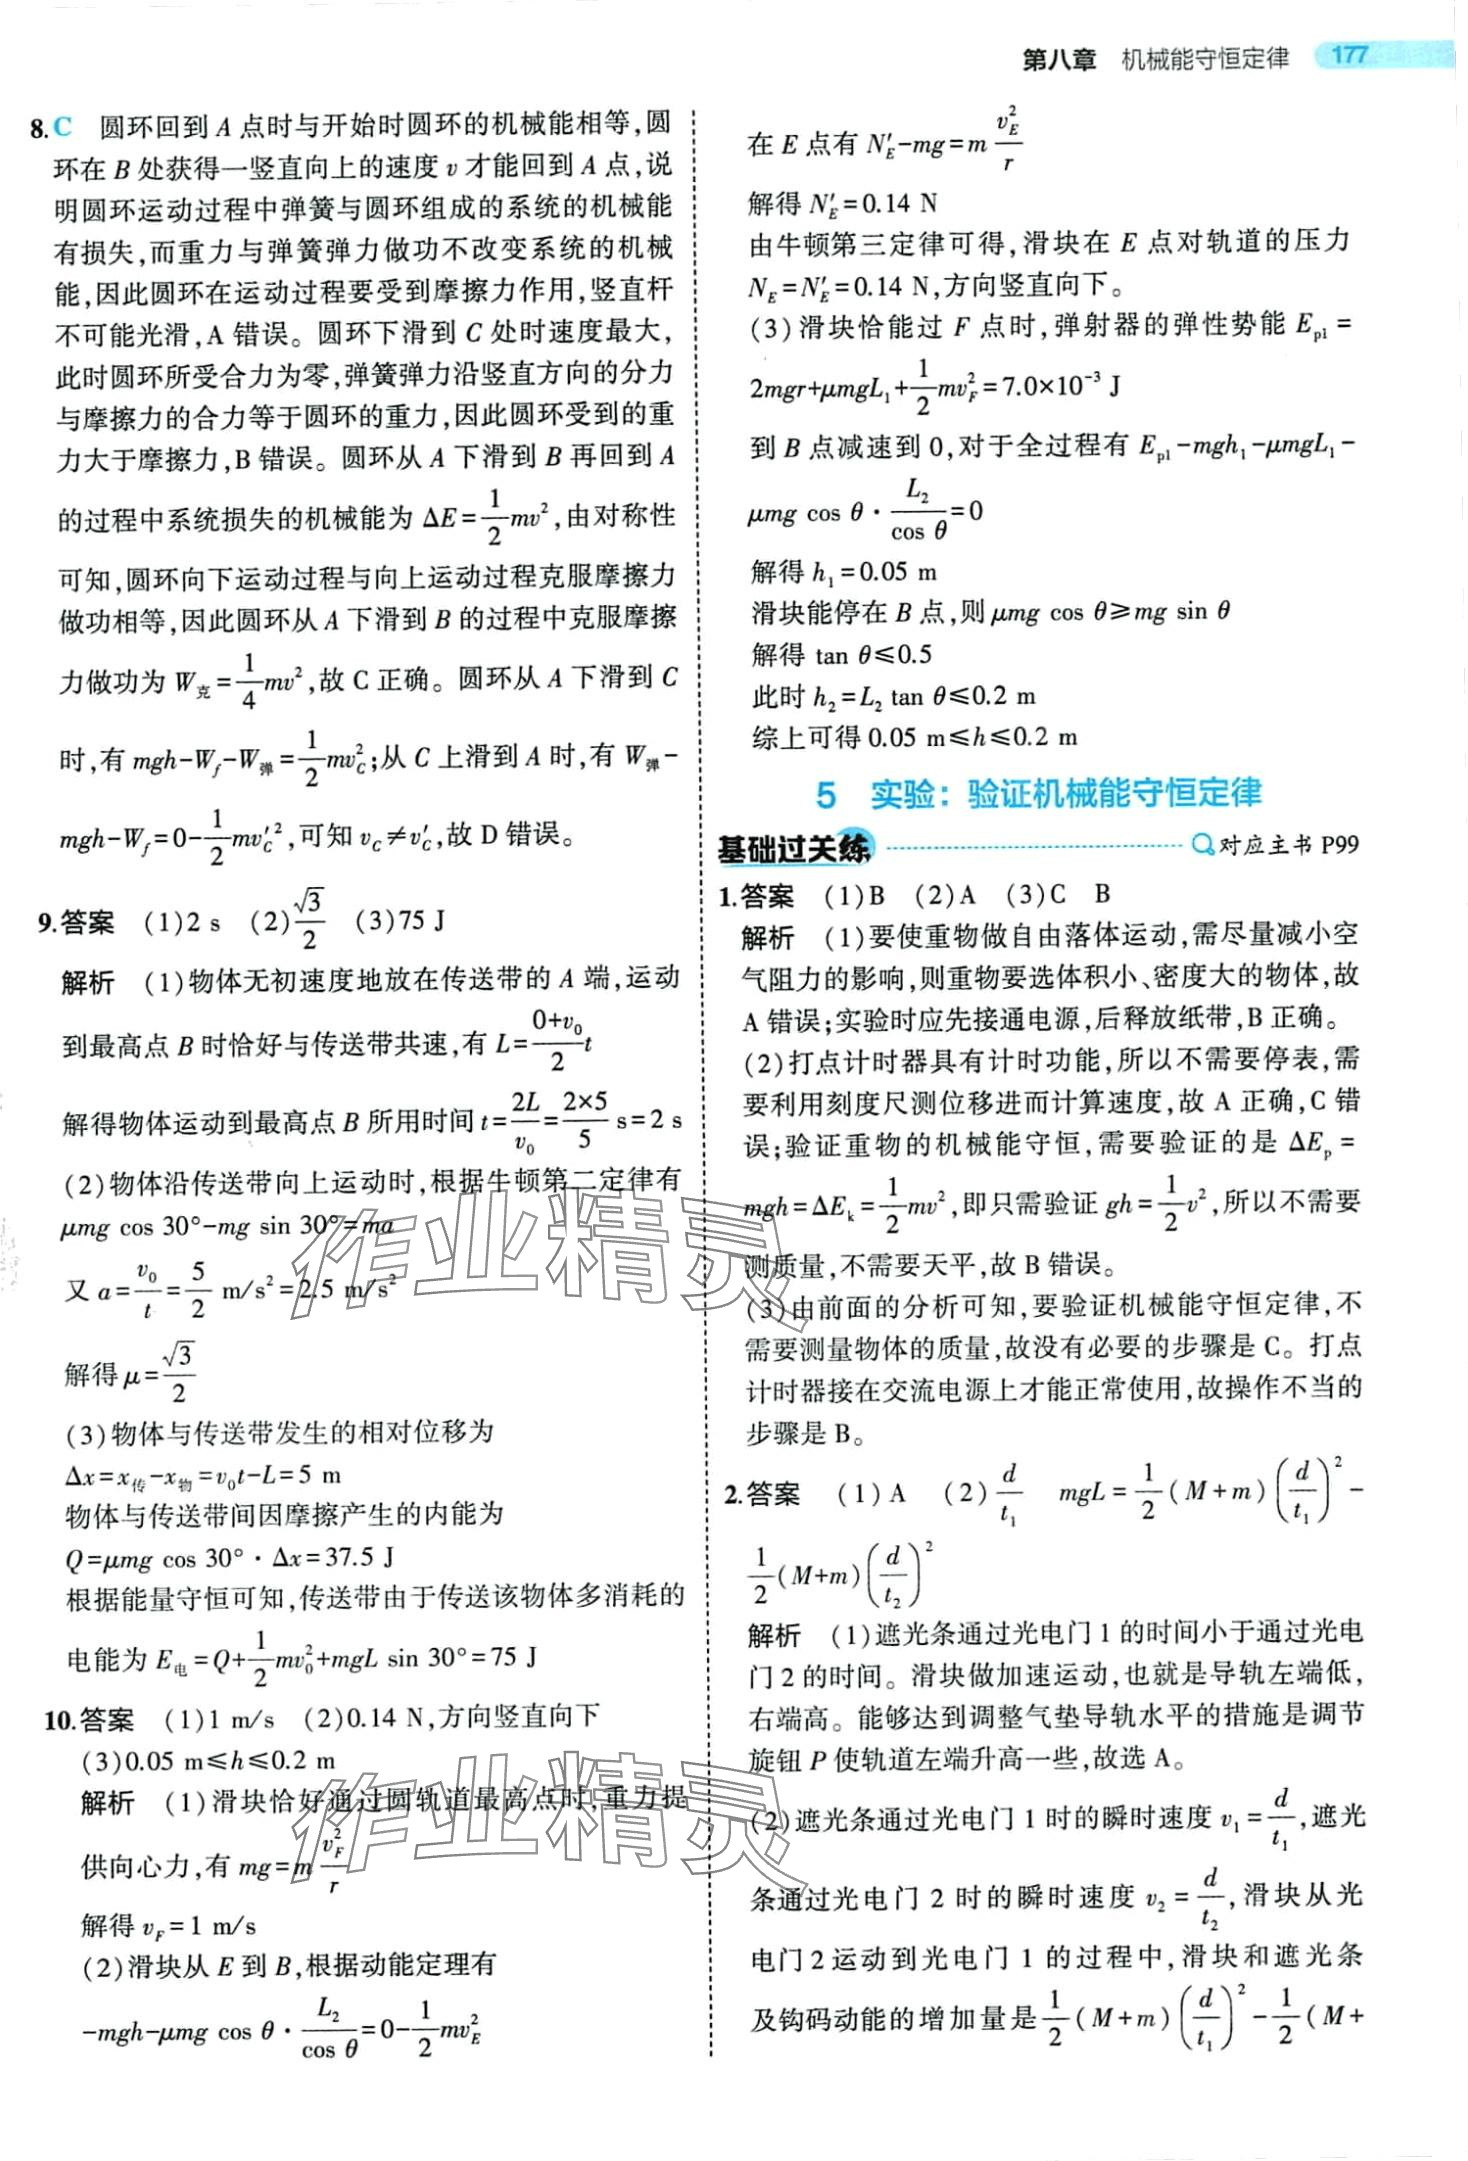 第八章 机械能守恒定律 177
8.C 圆环回到 A 点时与开始时圆环的机械能相等,圆
环在 B 处获得一竖直向上的速度 v 才能回到 A 点,说
明圆环运动过程中弹簧与圆环组成的系统的机械能
有损失,而重力与弹簧弹力做功不改变系统的机械
能,因此圆环在运动过程要受到摩擦力作用,竖直杆
不可能光滑,A 错误。圆环下滑到 C 处时速度最大,
此时圆环所受合力为零,弹簧弹力沿竖直方向的分力
与摩擦力的合力等于圆环的重力,因此圆环受到的重
力大于摩擦力,B 错误。圆环从 A 下滑到 B 再回到 A
的过程中系统损失的机械能为 ΔE=\frac{1}{2}mv²,由对称性
可知,圆环向下运动过程与向上运动过程克服摩擦力
做功相等,因此圆环从 A 下滑到 B 的过程中克服摩擦
力做功为 W_克=\frac{1}{4}mv²,故 C 正确。圆环从 A 下滑到 C
时,有 mgh-W_f-W_弹=\frac{1}{2}mv_C²;从 C 上滑到 A 时,有 W_弹-
mgh-W_f=0-\frac{1}{2}mv_C'²,可知 v_C≠v_C',故 D 错误。
9.答案 (1)2 s (2)\frac{√3}{2} (3)75 J
解析 (1)物体无初速度地放在传送带的 A 端,运动
到最高点 B 时恰好与传送带共速,有 L=\frac{0+v_0}{2}t
解得物体运动到最高点 B 所用时间 t=\frac{2L}{v_0}=\frac{2×5}{5} s=2 s
(2)物体沿传送带向上运动时,根据牛顿第二定律有
μmg cos 30°-mg sin 30°=ma
又 a=\frac{v_0}{t}=\frac{5}{2} m/s²=2.5 m/s²
解得 μ=\frac{√3}{2}
(3)物体与传送带发生的相对位移为
Δx=x_传-x_物=v_0t-L=5 m
物体与传送带间因摩擦产生的内能为
Q=μmg cos 30°·Δx=37.5 J
根据能量守恒可知,传送带由于传送该物体多消耗的
电能为 E_电=Q+\frac{1}{2}mv_0²+mgL sin 30°=75 J
10.答案 (1)1 m/s (2)0.14 N,方向竖直向下
(3)0.05 m≤h≤0.2 m
解析 (1)滑块恰好通过圆轨道最高点时,重力提
供向心力,有 mg=m\frac{v_F²}{r}
解得 v_F=1 m/s
(2)滑块从 E 到 B,根据动能定理有
-mgh-μmg cos θ·\frac{L_2}{cos θ}=0-\frac{1}{2}mv_E²
在 E 点有 N_E'-mg=m\frac{v_E²}{r}
解得 N_E'=0.14 N
由牛顿第三定律可得,滑块在 E 点对轨道的压力
N_E=N_E'=0.14 N,方向竖直向下。
(3)滑块恰能过 F 点时,弹射器的弹性势能 E_{p1}=
2mgr+μmgL_1+\frac{1}{2}mv_F²=7.0×10⁻³ J
到 B 点减速到 0,对于全过程有 E_{p1}-mgh_1-μmgL_1-
μmg cos θ·\frac{L_2}{cos θ}=0
解得 h_1=0.05 m
滑块能停在 B 点,则 μmg cos θ≥mg sin θ
解得 tan θ≤0.5
此时 h_2=L_2 tan θ≤0.2 m
综上可得 0.05 m≤h≤0.2 m
5 实验:验证机械能守恒定律
基础过关练 对应主书 P99
1.答案 (1)B (2)A (3)C B
解析 (1)要使重物做自由落体运动,需尽量减小空
气阻力的影响,则重物要选体积小、密度大的物体,故
A 错误;实验时应先接通电源,后释放纸带,B 正确。
(2)打点计时器具有计时功能,所以不需要停表,需
要利用刻度尺测位移进而计算速度,故 A 正确,C 错
误;验证重物的机械能守恒,需要验证的是 ΔE_p=
mgh=ΔE_k=\frac{1}{2}mv²,即只需验证 gh=\frac{1}{2}v²,所以不需要
测质量,不需要天平,故 B 错误。
(3)由前面的分析可知,要验证机械能守恒定律,不
需要测量物体的质量,故没有必要的步骤是 C。打点
计时器接在交流电源上才能正常使用,故操作不当的
步骤是 B。
2.答案 (1)A (2)\frac{d}{t_1} mgL=\frac{1}{2}(M+m)(\frac{d}{t_1})²-
\frac{1}{2}(M+m)(\frac{d}{t_2})²
解析 (1)遮光条通过光电门 1 的时间小于通过光电
门 2 的时间。滑块做加速运动,也就是导轨左端低,
右端高。能够达到调整气垫导轨水平的措施是调节
旋钮 P 使轨道左端升高一些,故选 A。
(2)遮光条通过光电门 1 时的瞬时速度 v_1=\frac{d}{t_1},遮光
条通过光电门 2 时的瞬时速度 v_2=\frac{d}{t_2},滑块从光
电门 2 运动到光电门 1 的过程中,滑块和遮光条
及钩码动能的增加量是\frac{1}{2}(M+m)(\frac{d}{t_1})²-\frac{1}{2}(M+
作业精灵
作业精灵